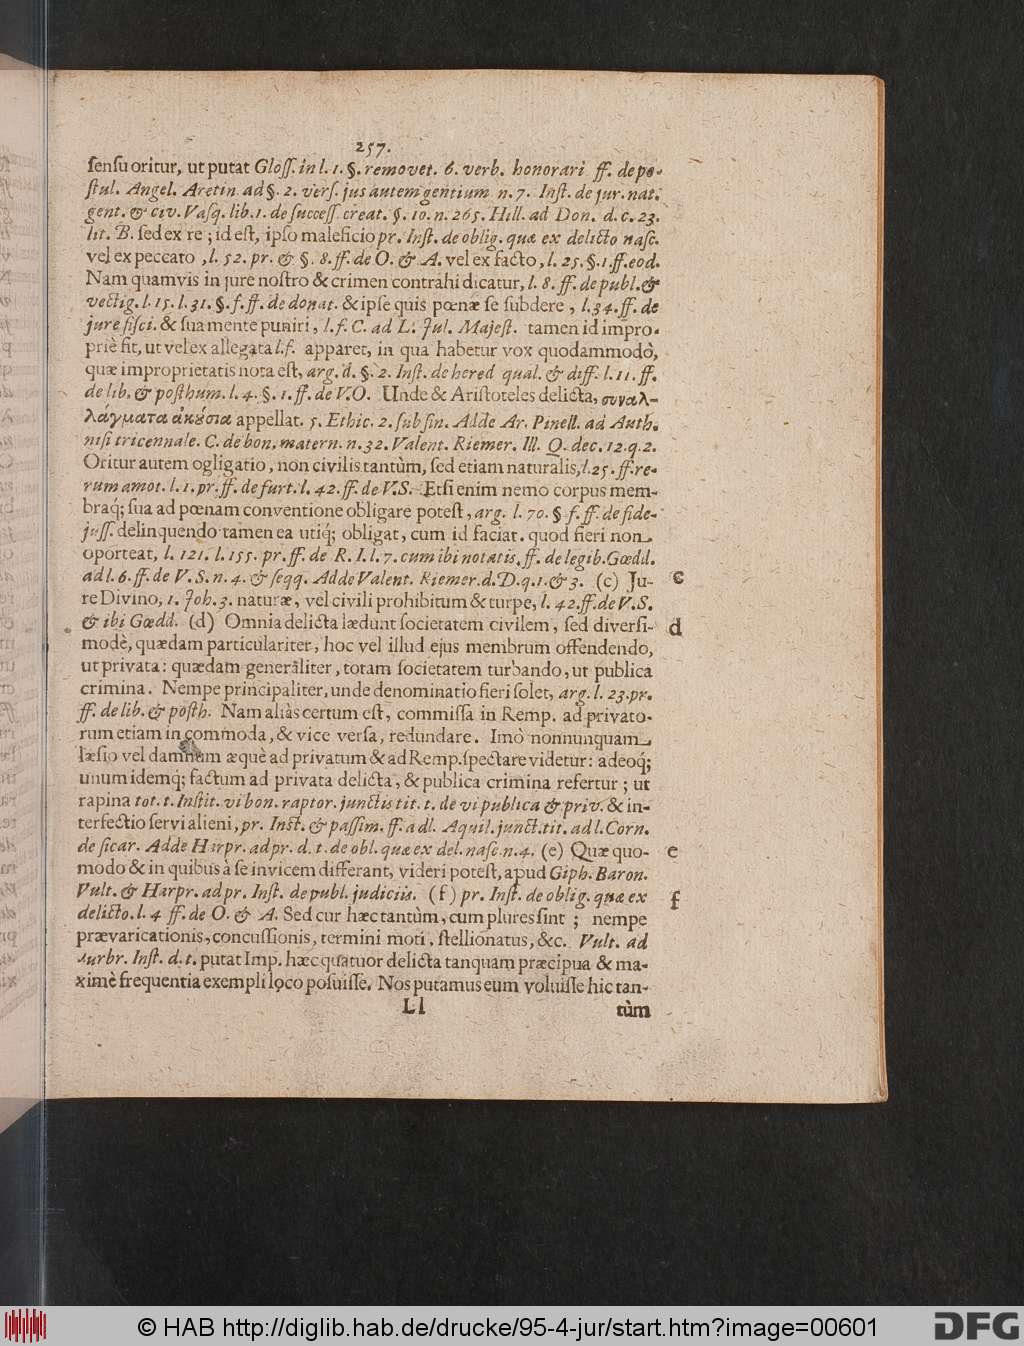 257.
ſenſu oritur, ut putat Gloſſ. in l. 1. §. removet. 6. verb. honorari ff. de po-
ſtul. Angel. Aretin ad §. 2. verſ. jus autem gentium n. 7. Inſt. de jur. nat.
gent. & civ. Vaſq. lib. 1. de ſucceſſ. creat. §. 10. n. 265. Hill. ad Don. d. c. 23.
lit. B. ſed ex re; id eſt, ipſo maleficio pr. Inſt. de oblig. quæ ex delicto naſc.
vel ex peccato, l. 52. pr. & §. 8. ff. de O. & A. vel ex facto, l. 25. §. 1. ff. eod.
Nam quamvis in jure noſtro & crimen contrahi dicatur, l. 8. ff. de publ. &
vectig. l. 15. l. 31. §. f. ff. de donat. & ipſe quis pœnæ ſe ſubdere, l. 34. ff. de
jure fiſci. & ſua mente puniri, l. f. C. ad L. Jul. Majeſt. tamen id impro-
priè fit, ut vel ex allegata l. f. apparet, in qua habetur vox quodammodò,
quæ improprietatis nota eſt, arg. d. §. 2. Inſt. de hered qual. & diff. l. 11. ff.
de lib. & poſthum. l. 4. §. 1. ff. de V. O. Unde & Ariſtoteles delicta, συναλ-
λάγματα ἀκούσια appellat. 5. Ethic. 2. ſub fin. Adde Ar. Pinell. ad Auth.
niſi tricennale. C. de bon. matern. n. 32. Valent. Riemer. Ill. Q. dec. 12. q. 2.
Oritur autem ogligatio, non civilis tantùm, ſed etiam naturalis, l. 25. ff. re-
rum amot. l. 1. pr. ff. de furt. l. 42. ff. de V. S. Etſi enim nemo corpus mem-
braq́; ſua ad pœnam conventione obligare poteſt, arg. l. 70. § f. ff. de fide-
juſſ. delinquendo tamen ea utiq́; obligat, cum id faciat. quod fieri non
oporteat, l. 121. l. 155. pr. ff. de R. I. l. 7. cum ibi notatis. ff. de legib. Gœdd.
ad l. 6. ff. de V. S. n. 4. & ſeqq. Adde Valent. Riemer. d. D. q. 1. & 3. (c) Ju- c
re Divino, 1. Joh. 3. naturæ, vel civili prohibitum & turpe, l. 42. ff. de V. S.
& ibi Gœdd. (d) Omnia delicta lædunt ſocietatem civilem, ſed diverſi- d
modè, quædam particulariter, hoc vel illud ejus membrum offendendo,
ut privata: quædam generaliter, totam ſocietatem turbando, ut publica
crimina. Nempe principaliter, unde denominatio fieri ſolet, arg. l. 23. pr.
ff. de lib. & poſth. Nam aliàs certum eſt, commiſſa in Remp. ad privato-
rum etiam in commoda, & vice verſa, redundare. Imò nonnunquam
læſio vel damnum æquè ad privatum & ad Remp. ſpectare videtur: adeoq́;
unum idemq́; factum ad privata delicta, & publica crimina refertur; ut
rapina tot. t. Inſtit. vi bon. raptor. junctis tit. t. de vi publica & priv. & in-
terfectio ſervi alieni, pr. Inſt. & paſſim. ff. ad l. Aquil. junct. tit. ad l. Corn.
de ſicar. Adde Harpr. ad pr. d. t. de obl. quæ ex del. naſc. n. 4. (e) Quæ quo- e
modo & in quibus à ſe invicem differant, videri poteſt, apud Giph. Baron.
Vult. & Harpr. ad pr. Inſt. de publ. judiciis. (f) pr. Inſt. de oblig. quæ ex f
delicto. l. 4 ff. de O. & A. Sed cur hæc tantùm, cum plures ſint; nempe
prævaricationis, concuſſionis, termini moti, ſtellionatus, &c. Vult. ad
Inſt. d. t. putat Imp. hæc quatuor delicta tanquam præcipua & ma-
ximè frequentia exempli loco poſuiſſe. Nos putamus eum voluiſſe hic tan-
Ll tùm
© HAB http://diglib.hab.de/drucke/95-4-jur/start.htm?image=00601
DFG